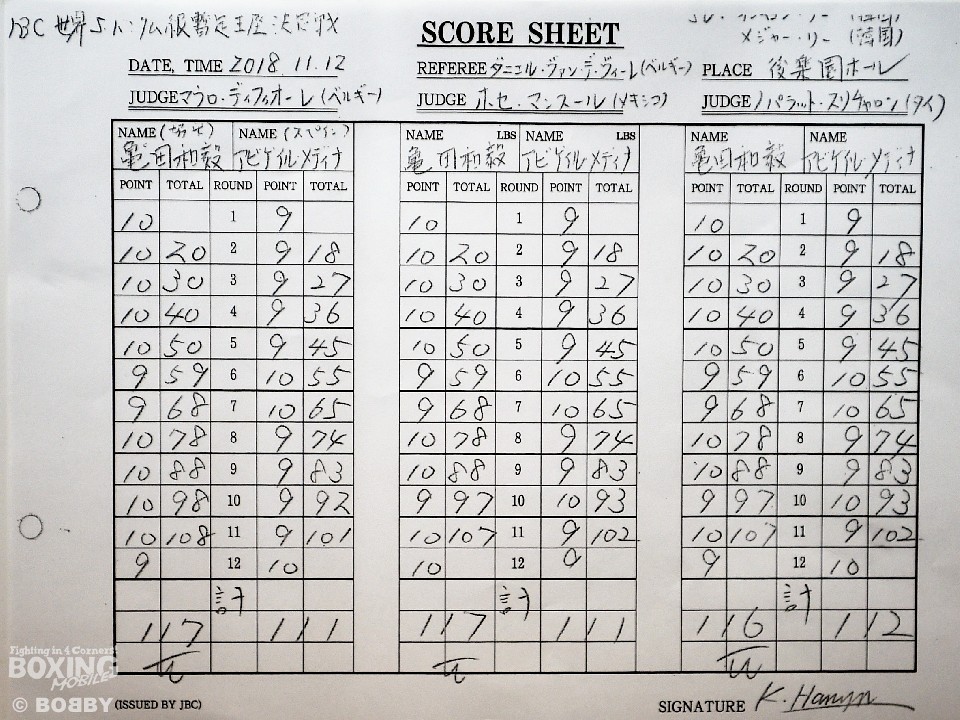 世界S.バンタム級暫定王座決定戦
SCORE SHEET
メジャー・リー (韓国)
DATE, TIME 2018. 11. 12
REFEREE ダニエル・ヴァン・デ・ヴィーレ(ベルギー)
PLACE 後楽園ホール
JUDGE マウロ・ディフィオーレ(ベルギー)
JUDGE ホセ・マンスール(メキシコ)
JUDGE ノパラット・スリチャロン(タイ)
NAME NAME (スペイン) NAME LBS NAME LBS NAME NAME
亀田和毅 アビゲイル メディナ 亀田和毅 アビゲイル メディナ 亀田和毅 アビゲイル メディナ
POINT TOTAL ROUND POINT TOTAL POINT TOTAL ROUND POINT TOTAL POINT TOTAL ROUND POINT TOTAL
10 1 9 10 1 9 10 1 9
10 20 2 9 18 10 20 2 9 18 10 20 2 9 18
10 30 3 9 27 10 30 3 9 27 10 30 3 9 27
10 40 4 9 36 10 40 4 9 36 10 40 4 9 36
10 50 5 9 45 10 50 5 9 45 10 50 5 9 45
9 59 6 10 55 9 59 6 10 55 9 59 6 10 55
9 68 7 10 65 9 68 7 10 65 9 68 7 10 65
10 78 8 9 74 10 78 8 9 74 10 78 8 9 74
10 88 9 9 83 10 88 9 9 83 10 88 9 9 83
10 98 10 9 92 9 97 10 10 93 9 97 10 10 93
10 108 11 9 101 10 107 11 9 102 10 107 11 9 102
9 12 10 10 12 9 9 12 10
計 計 計
117 111 117 111 116 112
Fighting in 4 Corners!
BOXING
MOBILE
© BOBBY
(ISSUED BY JBC)
SIGNATURE K.